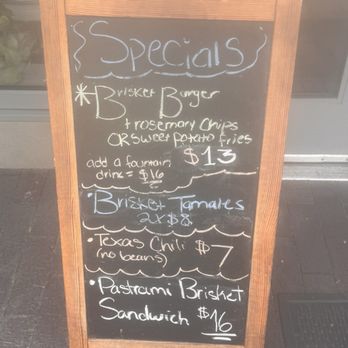 {Specials}
*Brisket Burger
+ rosemary chips
OR sweet potato fries
$13
add a fountain
drink = $16
• Brisket Tamales
2 x $8
• Texas Chili $7
(no beans)
• Pastrami Brisket
Sandwich $16